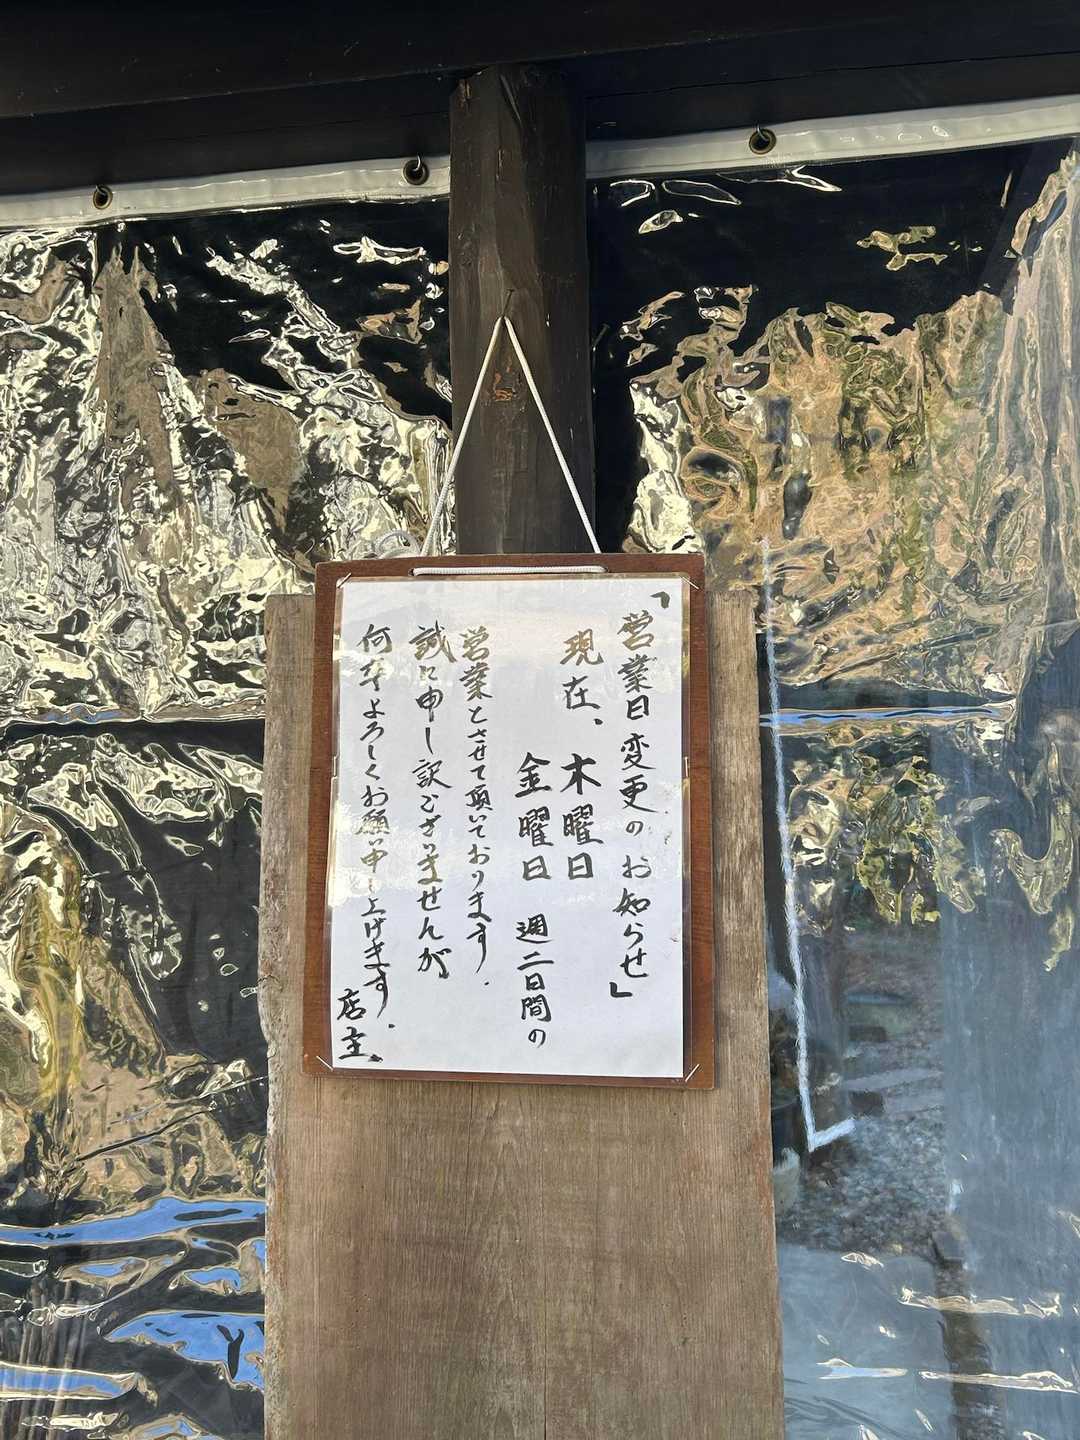 「営業日変更のお知らせ」
現在、木曜日
金曜日 週二日間の
営業とさせて頂いております.
誠に申し訳ございませんが
何卒よろしくお願い申し上げます.
店主.